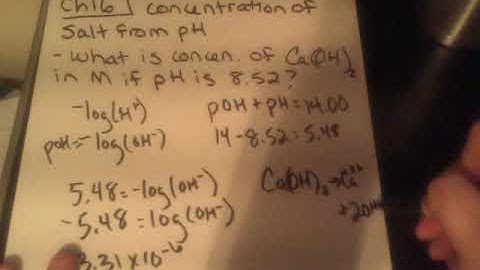 Ch16 concentration of
Salt from pH
- What is concen. of Ca(OH)₂
in M if pH is 8.52?
-log(H⁺)
pOH + pH = 14.00
pOH = -log(OH⁻)
14 - 8.52 = 5.48
5.48 = -log(OH⁻)
Ca(OH)₂ → Ca²⁺
+ 2OH⁻
-5.48 = log(OH⁻)
3.31 × 10⁻⁶